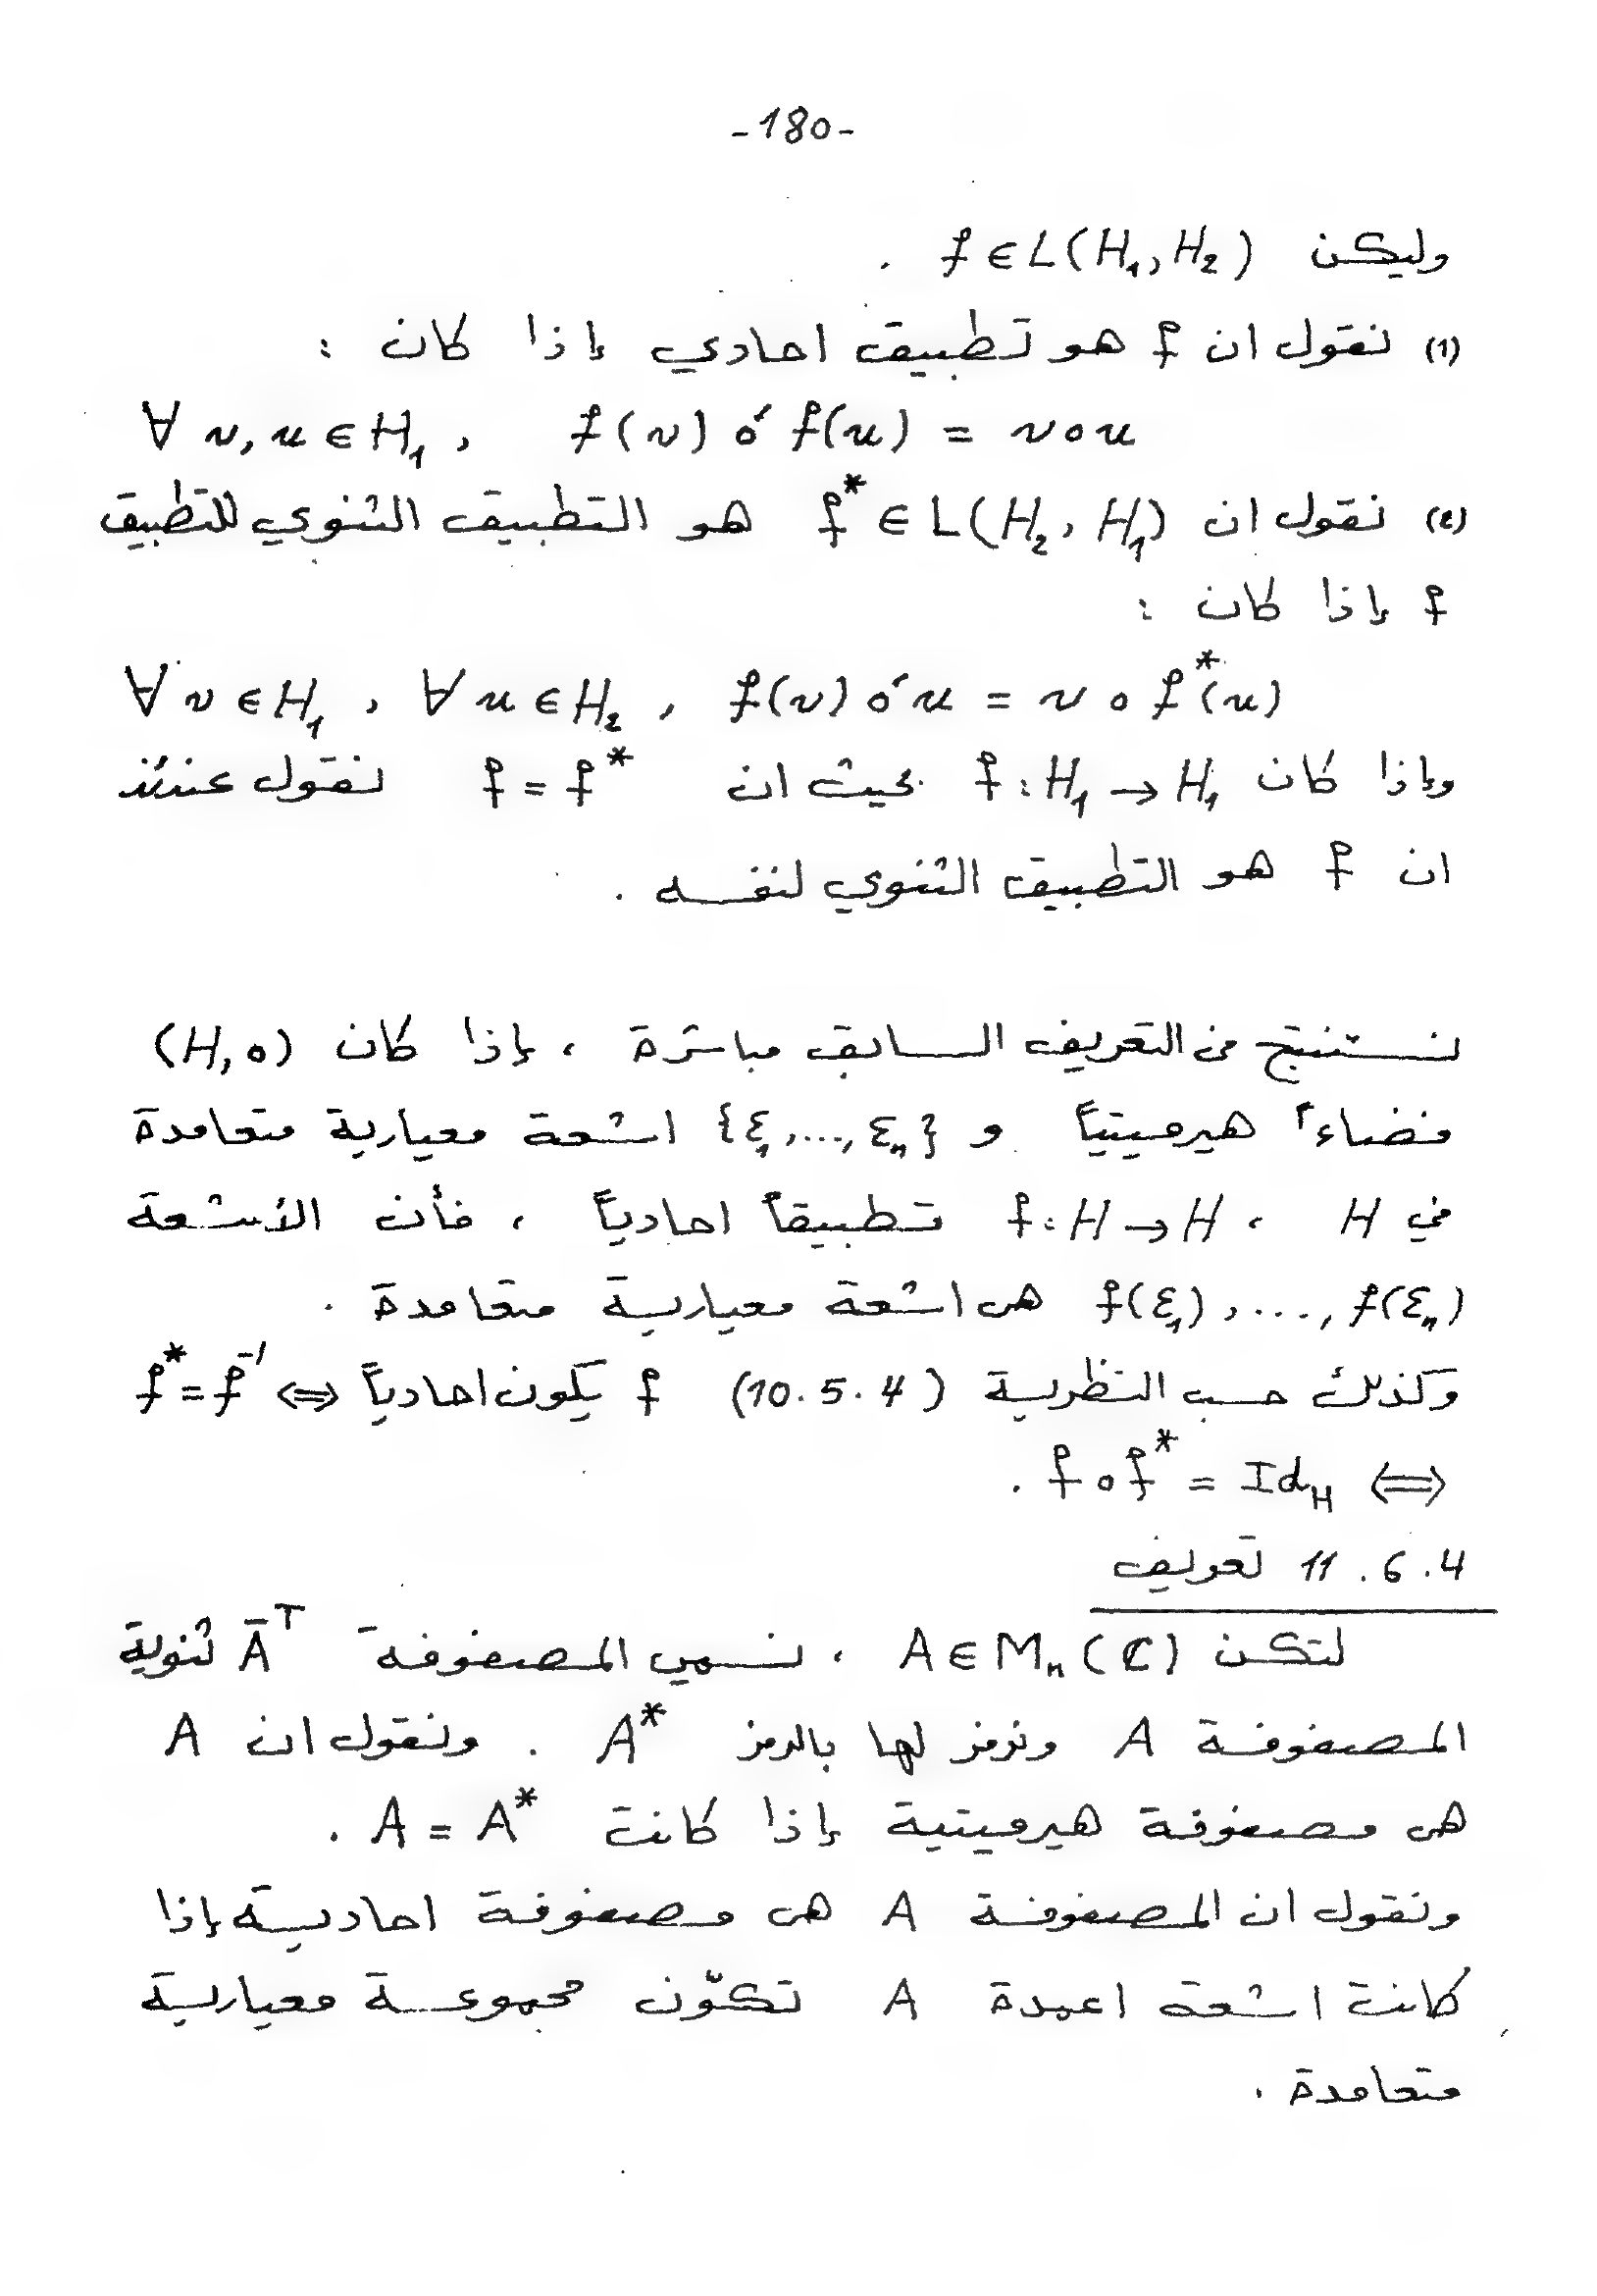 -180-
وليكن f ∈ L(H₁, H₂) .
(1) نقول ان f هو تطبيق احادي إذا كان :
∀ v, u ∈ H₁ , f(v) o' f(u) = v o u
(2) نقول ان f* ∈ L(H₂, H₁) هو التطبيق الثنوي للتطبيق
f إذا كان :
∀ v ∈ H₁ , ∀ u ∈ H₂ , f(v) o' u = v o f*(u)
وإذا كان f : H₁ → H₁ بحيث ان f = f* نقول عندئذ
ان f هو التطبيق الثنوي لنفسه .
نستنتج من التعريف السابق مباشرة ، إذا كان (H, o)
فضاءاً هيرميتياً و {ε₁, ..., εₙ} اشعة معيارية متعامدة
في H ، f : H → H تطبيقاً احادياً ، فأن الأشعة
f(ε₁), ..., f(εₙ) هي اشعة معيارية متعامدة .
وكذلك حسب النظرية (10.5.4) f يكون احادياً ⟺ f* = f⁻¹
⟺ f o f* = Id_H .
11.6.4 تعريف
لتكن A ∈ Mₙ(ℂ) ، نسمي المصفوفة Āᵀ ثنوية
المصفوفة A ونرمز لها بالرمز A* . ونقول ان A
هي مصفوفة هيرميتية إذا كانت A = A* .
ونقول ان المصفوفة A هي مصفوفة احادية إذا
كانت اشعة اعمدة A تكوّن مجموعة معيارية
متعامدة .